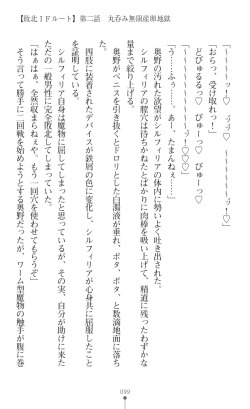 【敗北IFルート】第二話　丸呑み無限産卵地獄
「おらっ、受け取れっ！」
「うっ……ふぅ……。あー、たまんねぇ……」
奥野の汚れた欲望がシルフィリアの体内に勢いよく吐き出された。
とばかりに肉棒を吸い上げて、精道に残ったわずかな
まで絞り上げる。
奥野がペニスを引き抜くとドロリとした白濁液が垂れ、ボタ、ボタ、と数滴地面に落ち
た。
四肢に装着されたデバイスが鉄屑の色に変化し、シルフィリアが心身共に屈服したこと
を証明している。
シルフィリア自身は魔物に屈してしまったと思っているが、その実、自分が助けに来た
ただの一般男性に完全敗北してしまっていた。
「はぁはぁ、全然収まらねぇや。もう一回穴を使わせてもらうぞ」
そう言って勝手に二回戦を始めようとする奥野だったが、ワーム型魔物の触手が腹に巻
099